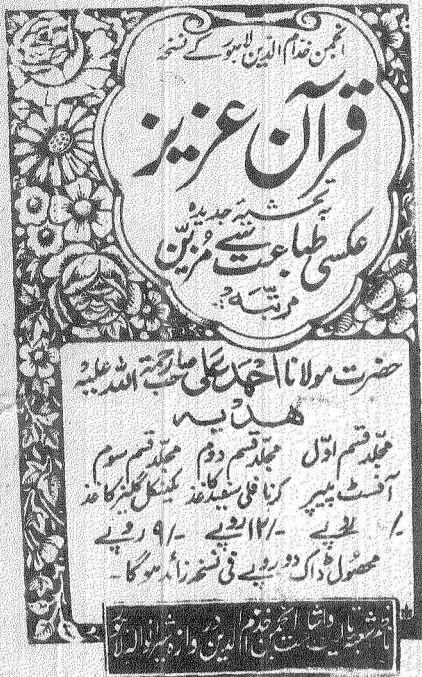 انجمن خدام الدین لاہور کے نسخہ
قرآن عزیز
بہ تحشیۂ جدیدہ
عکسی طباعت سے مزیّن
مرتّبہ:
حضرت مولانا احمد علی صاحب رحمۃ اللہ علیہ
ھدیہ
مجلّد قسم اوّل مجلّد قسم دوم مجلّد قسم سوم
آفسٹ پیپر کرنافلی سفید کاغذ کیمیکل گلیز کاغذ
روپے ۱۲/- روپے ۹/- روپے
محصول ڈاک دو روپے فی نسخہ زائد ہوگا۔
ناظم شعبہ تالیف و اشاعت انجمن خدام الدین دروازہ شیرانوالہ لاہور